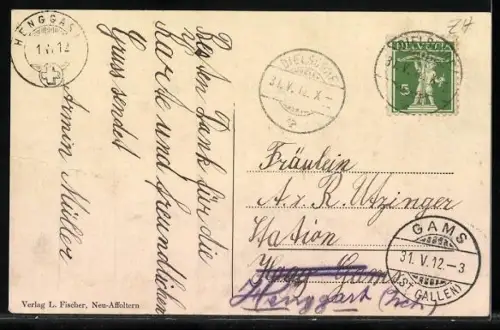 HENGGART
1.V.12
Besten Dank für die
Karte und freundlichen
Gruss sendet
Armin Müller
DIELSDORF
31.V.12.X-
HELVETIA
5
Fräulein
A. & R. Utzinger
Station
Haag Gams
Henggart (Zch)
GAMS
31.V.12.-3
(ST. GALLEN)
Verlag L. Fischer, Neu-Affoltern